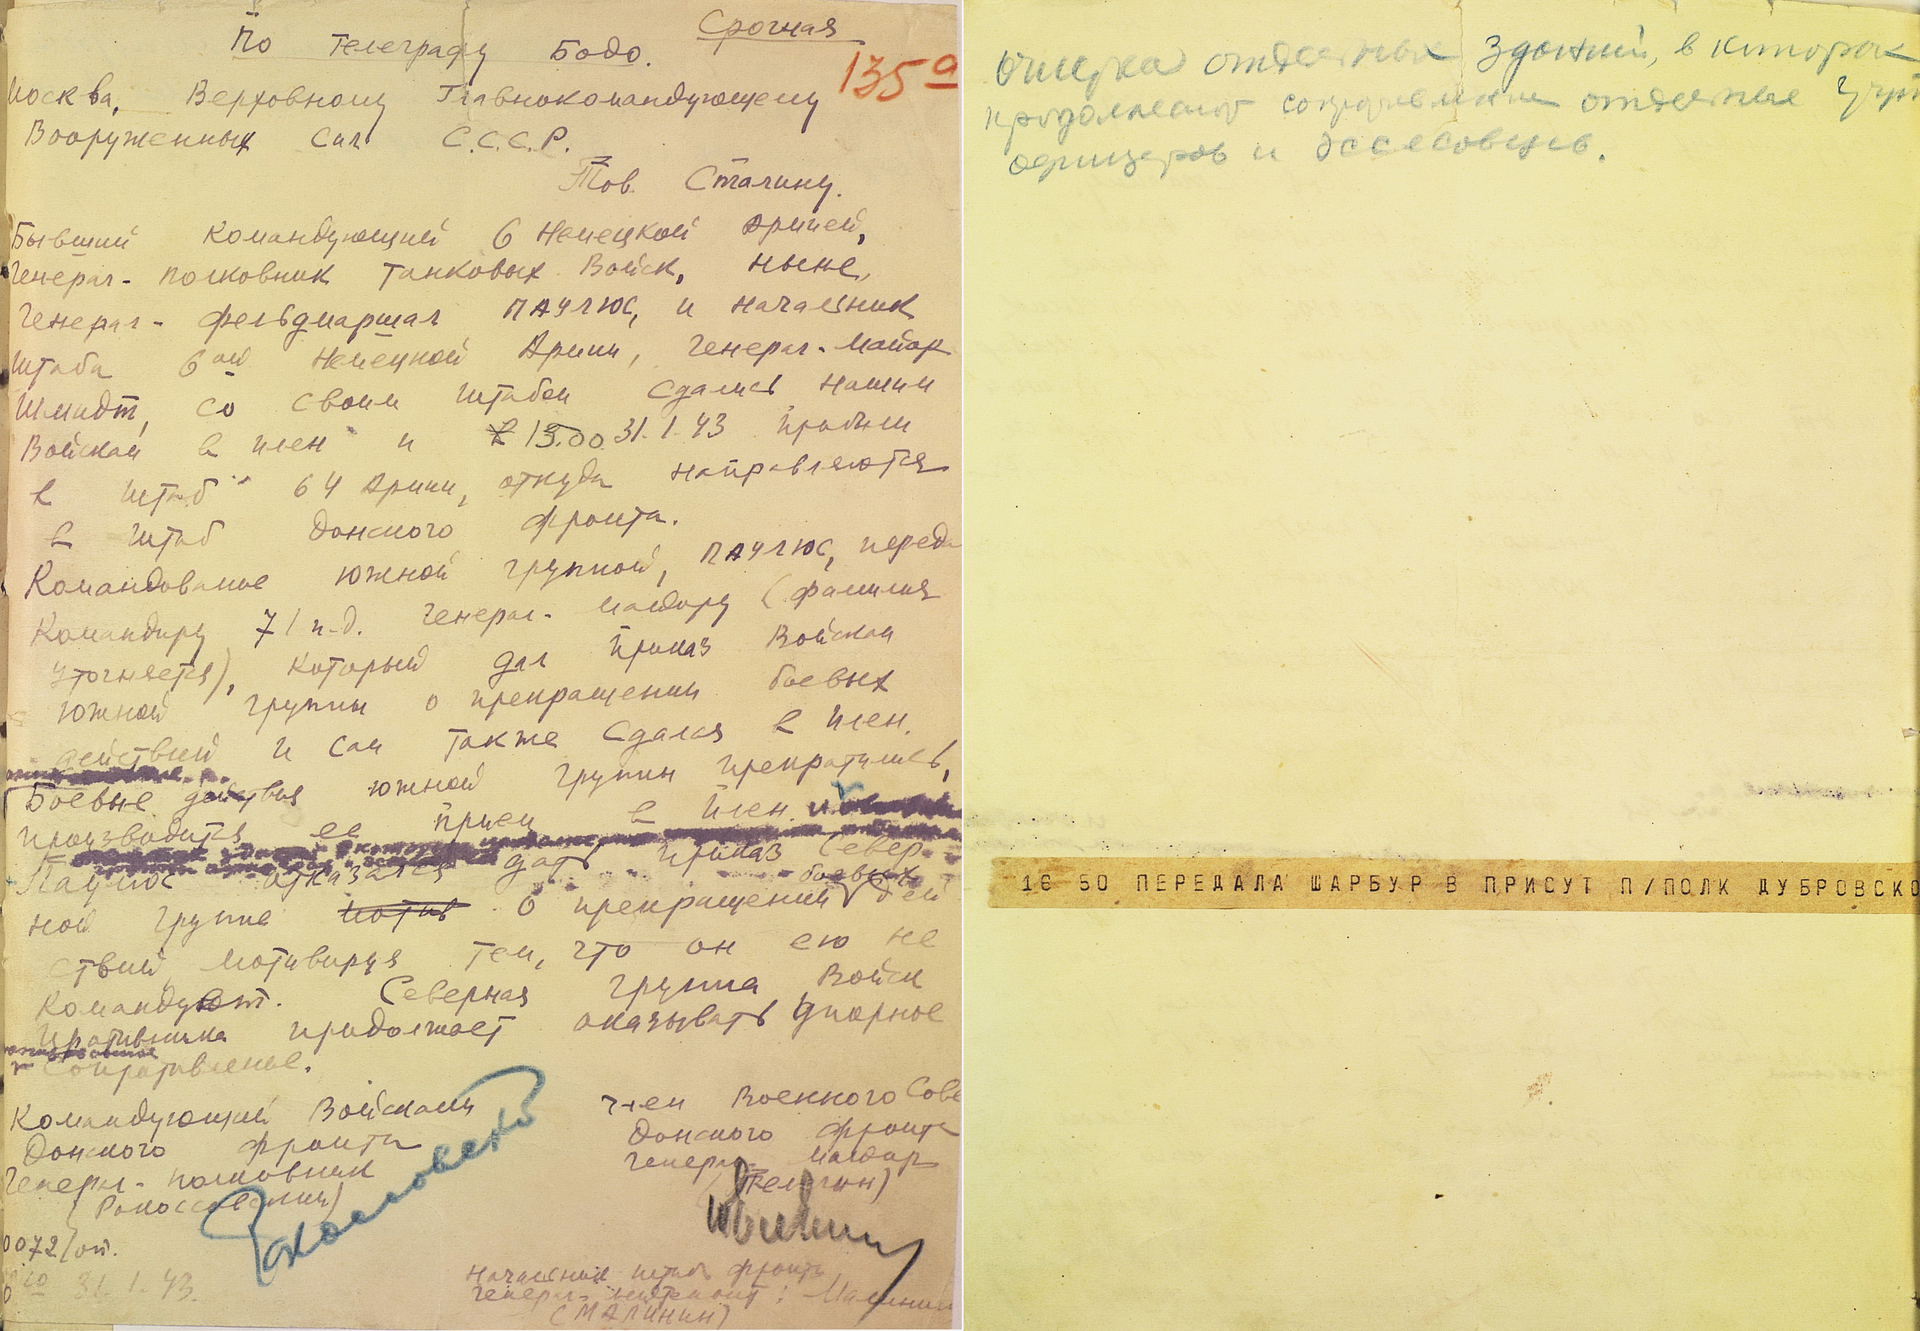 Срочная
По телеграфу Бодо.
135а
Москва, Верховному Главнокомандующему
Вооруженных Сил С.С.С.Р.
Тов. Сталину.
Бывший командующий 6 Немецкой Армией,
Генерал-полковник танковых войск, ныне,
Генерал-фельдмаршал ПАУЛЮС, и начальник
штаба 6ой Немецкой Армии, Генерал-майор
Шмидт, со своим штабом сдались нашим
Войскам в плен и в 15.00 31.1.43 прибыли
в штаб 64 Армии, откуда направляются
в штаб Донского фронта.
Командование южной группой, ПАУЛЮС, переда
Командиру 71 п.д. Генерал-майору (фамилия
уточняется), который дал приказ Войскам
южной группы о прекращении боевых
действий и сам также сдался в плен.
Боевые действия южной группы прекратились,
производится ее прием в плен.
Паулюс отказался дать приказ Север-
ной группе мотив о прекращении боевых дей
ствий, мотивируя тем, что он ею не
командует. Северная группа Войск
противника продолжает оказывать упорное
сопротивление.
Командующий Войсками
Донского фронта
Генерал-полковник
(Рокоссовский)
Рокоссовский
Член Военного Сове
Донского фронта
Генерал-майор
(Телегин)
0072/оп.
31.1.43.
Начальник штаба фронта
Генерал-лейтенант: Малинин
(МАЛИНИН)
Очистка отдельных зданий, в которых
продолжают сопротивление отдельные груп
офицеров и эссесовцев.
16 50 ПЕРЕДАЛА ШАРБУР В ПРИСУТ П/ПОЛК ДУБРОВСКО